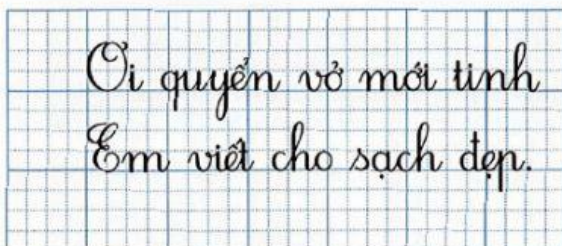 Ơi quyển vở mới tinh
Em viết cho sạch đẹp.